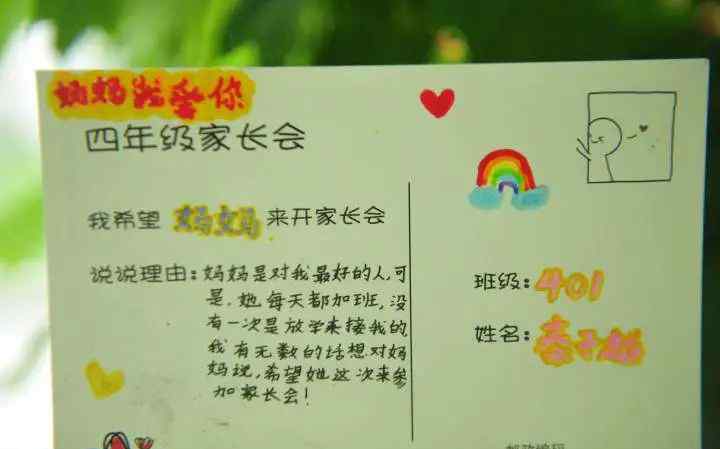 妈妈我爱你
四年级家长会
我希望 妈妈 来开家长会
说说理由:妈妈是对我最好的人,可
是,她每天都加班,没
有一次是放学来接我的,
我有无数的话想对妈
妈说,希望她这次来参
加家长会!
班级:401
姓名: